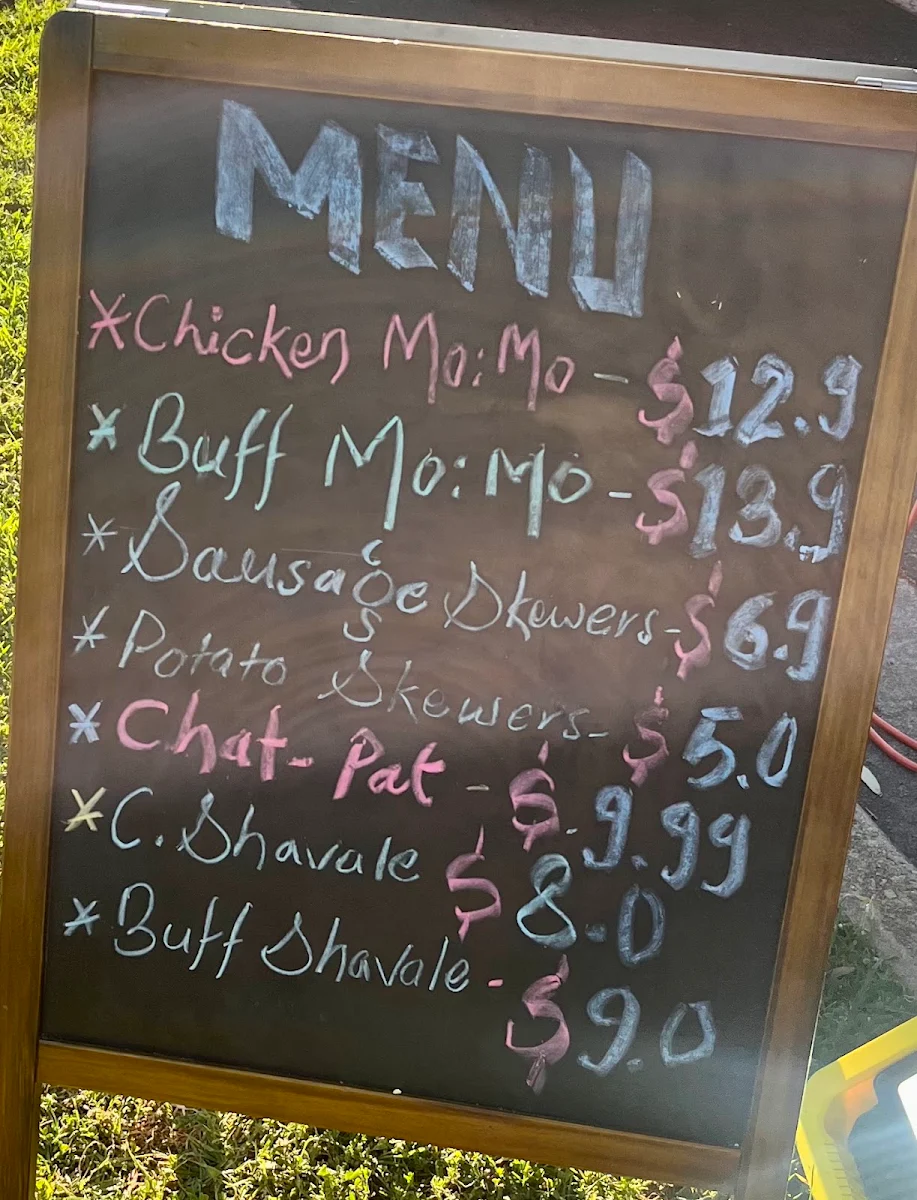 MENU
*Chicken Mo:Mo - $12.9
*Buff Mo:Mo - $13.9
*Sausage Skewers - $6.9
*Potato Skewers - $5.0
*Chat-Pat - $.9.99
*C. Shavale $8.0
*Buff Shavale - $9.0